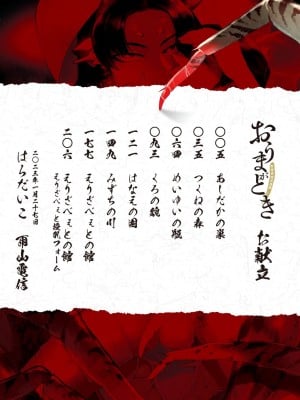 おりまがとき
お献立
〇〇五 あしだかの巣
〇三五 つくねの森
〇六四 めいゆいの駁
〇九三 くろの貌
一二一 はなえの園
一四九 みずちの川
一七七 えりざべぇとの館
二〇六 えりざべぇとの館
えりざべぇと授乳フォーム
二〇二三年一月二十七日
はらだいこ 雨山電信